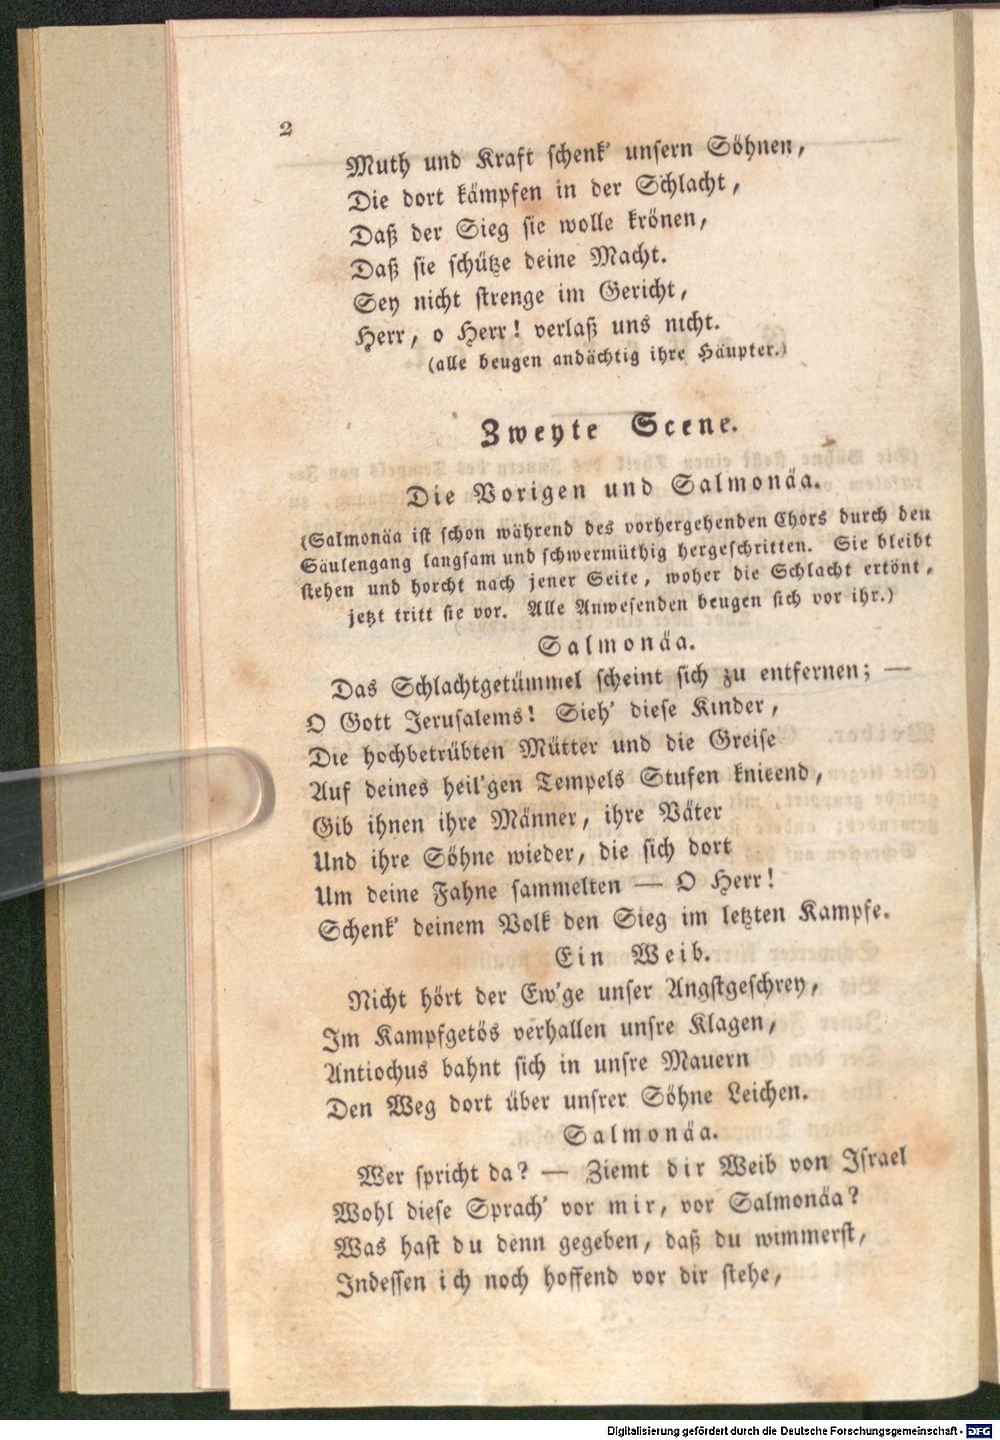 2
Muth und Kraft schenk' unsern Söhnen,
Die dort kämpfen in der Schlacht,
Daß der Sieg sie wolle krönen,
Daß sie schütze deine Macht.
Sey nicht strenge im Gericht,
Herr, o Herr! verlaß uns nicht.
(alle beugen andächtig ihre Häupter.)
Zweyte Scene.
Die Vorigen und Salmonäa.
(Salmonäa ist schon während des vorhergehenden Chors durch den
Säulengang langsam und schwermüthig hergeschritten. Sie bleibt
stehen und horcht nach jener Seite, woher die Schlacht ertönt,
jetzt tritt sie vor. Alle Anwesenden beugen sich vor ihr.)
Salmonäa.
Das Schlachtgetümmel scheint sich zu entfernen; —
O Gott Jerusalems! Sieh' diese Kinder,
Die hochbetrübten Mütter und die Greise
Auf deines heil'gen Tempels Stufen knieend,
Gib ihnen ihre Männer, ihre Väter
Und ihre Söhne wieder, die sich dort
Um deine Fahne sammelten — O Herr!
Schenk' deinem Volk den Sieg im letzten Kampfe.
Ein Weib.
Nicht hört der Ew'ge unser Angstgeschrey,
Im Kampfgetös verhallen unsre Klagen,
Antiochus bahnt sich in unsre Mauern
Den Weg dort über unsrer Söhne Leichen.
Salmonäa.
Wer spricht da? — Ziemt dir Weib von Israel
Wohl diese Sprach' vor mir, vor Salmonäa?
Was hast du denn gegeben, daß du wimmerst,
Indessen ich noch hoffend vor dir stehe,
Digitalisierung gefördert durch die Deutsche Forschungsgemeinschaft - DFG